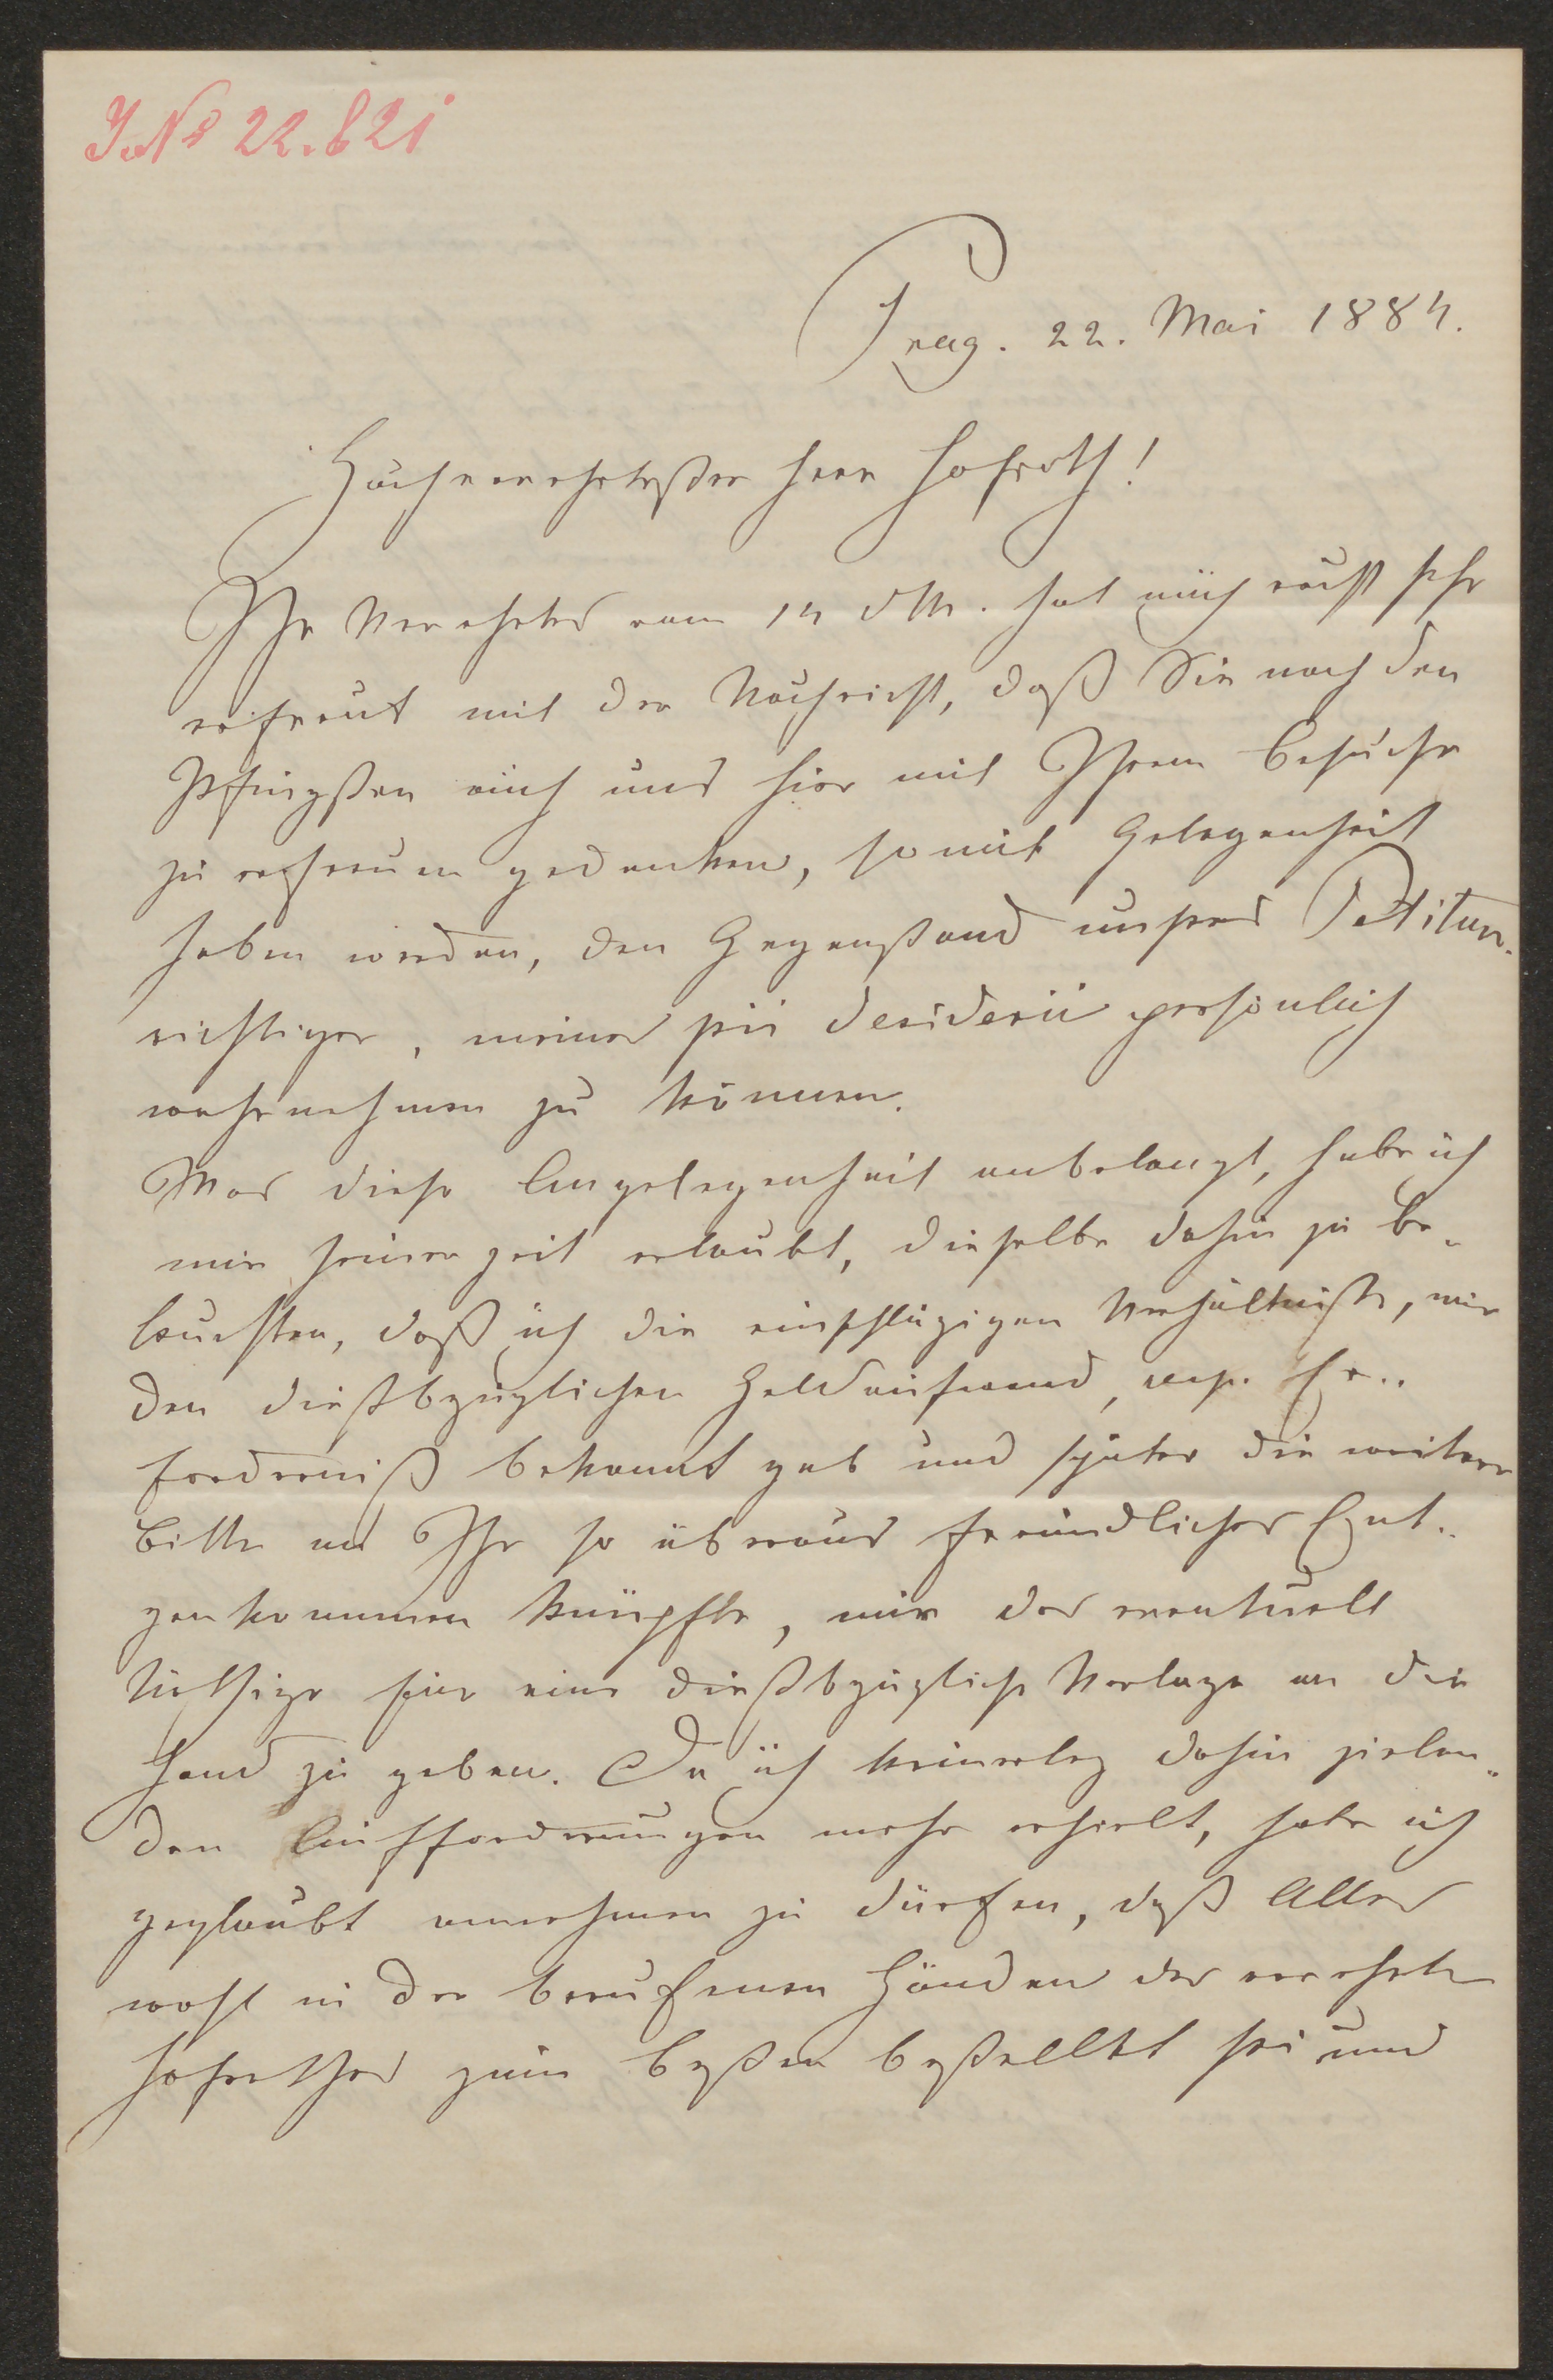 J.N⁰ 22.821
Prag. 22. Mai 1884.
Hochverehrtester Herr Hofrath!
Ihr Verehrtes vom 14 dM. hat mich recht sehr
erfreut mit der Nachricht, daß Sie nach den
Pfingsten auch uns hier mit Ihrem Besuche
zu erfreuen gedenken, somit Gelegenheit
haben werden, den Gegenstand unsres Petitums
richtiger, meines pii desiderii persönlich
wahrnehmen zu können.
Was diese Angelegenheit anbelangt, habe ich
mir seiner zeit erlaubt, dieselbe dahin zu be-
leuchten, daß ich die einschlägigen Verhältniße, wie
den dießbzüglichen Geldaufwand, resp. Er-
forderniß bekannt gab und später die weitere
Bitte an Ihr so überaus freundliches Ent-
genkommen knüpfte, mir das eventuell
Nöthige für eine dießbzügliche Vorlage an die
Hand zu geben. Da ich keinerley dahin zielen-
den Aufforderungen mehr erhielt, habe ich
geglaubt annehmen zu dürfen, daß Alles
wohl in den berufenen Händen des verehrten
Hofrathes zum Besten bestellt sei und